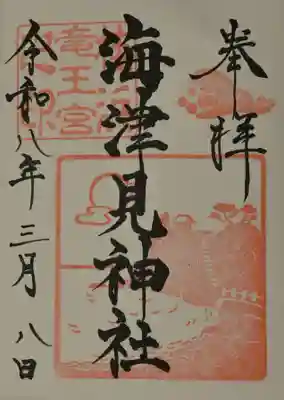 奉拝
海津見神社
竜王宮
令和八年三月八日